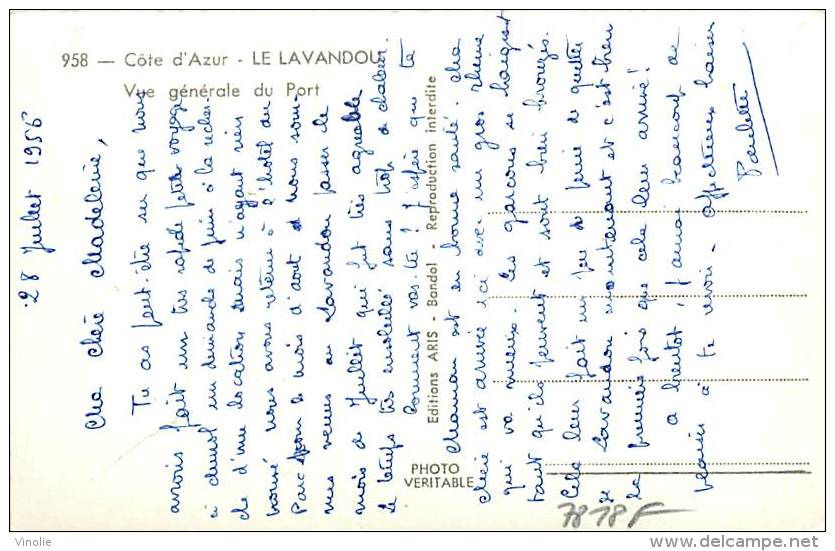 958 — Côte d'Azur - LE LAVANDOU
Vue générale du Port
28 Juillet 1956
Ma chère Madeleine,
Tu as peut-être su que nous
avions fait un très rapide petit voyage
ici début un demande de juin à la recher-
che d'une location mais n'ayant rien
trouvé nous avons retenu à l'hôtel du
Parc pour le mois d'août et nous som-
mes venus au Lavandou passer le
mois de Juillet qui fut très agréable
le temps très ensoleillé sans trop de chaleur.
Comment vas-tu ? J'espère que te
Maman est en bonne santé. Ma
chérie est arrivée ici avec un gros rhume
qui va mieux. Les garçons se baignent
tant qu'ils peuvent et sont bien bronzés.
Cela leur fait un peu de peine de quitter
le Lavandou maintenant et c'est bien
la première fois que cela leur arrive !
A bientôt, j'aurai beaucoup de
plaisir à te revoir - affectueux baisers
Paulette
Editions ARIS - Bandol - Reproduction interdite
PHOTO
VERITABLE
7818F
Vinolie
delcampe.net